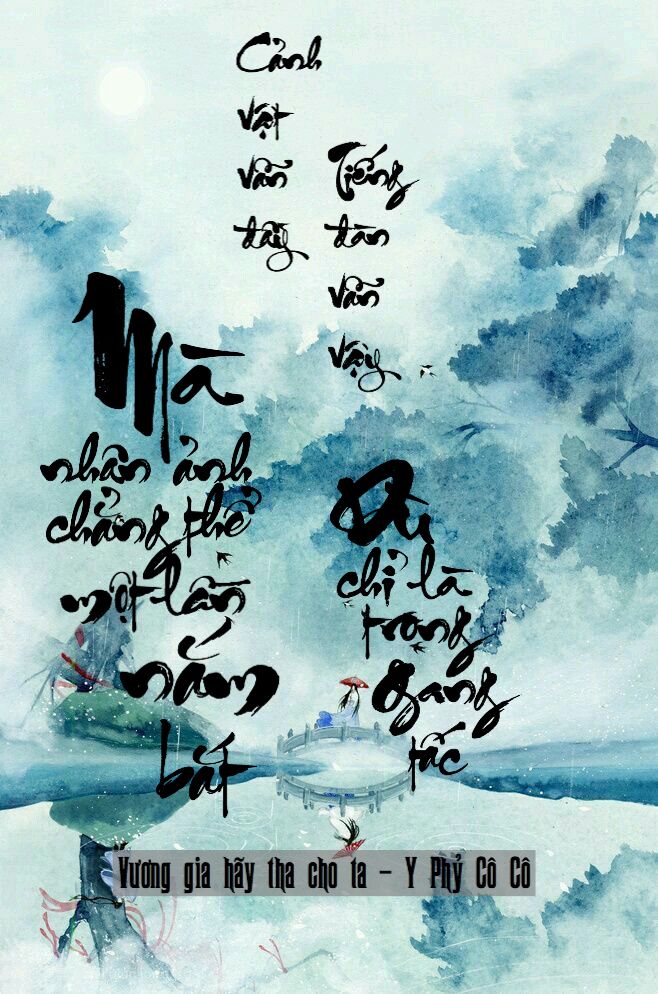 Cảnh
vật
vẫn
đấy
Tiếng
đàn
vẫn
vậy
Mà
nhân ảnh
chẳng thể
một lần
nắm
bắt
Dù
chỉ là
trong
gang
tấc
Vương gia hãy tha cho ta – Y Phỷ Cô Cô